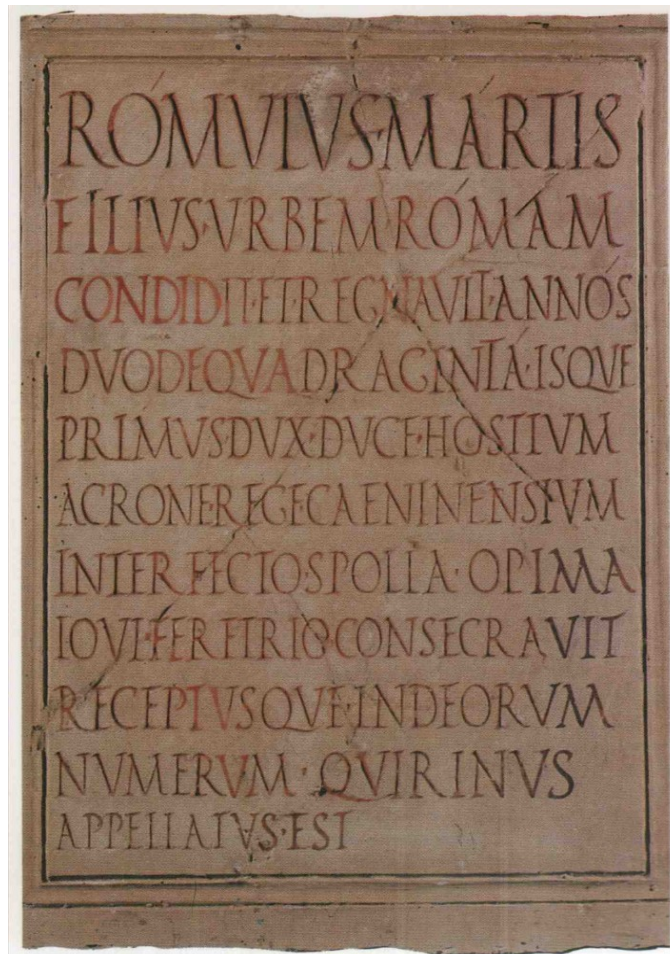 RÓMVLVS·MÁRTIS
FILIVS·VRBEM·RÓMAM
CONDIDIT·ET·REGNAVIT·ANNÓS
DVODEQVADRAGINTÁ·ISQVE
PRÍMVS·DVX·DVCE·HOSTIVM
ACRONE·REGE·CAENINENSIVM
INTERFECTO·SPOLIA·OPIMA
IOVI·FERETRIO·CONSECRAVIT
RECEPTVSQVE·IN·DEORVM
NVMERVM·QVIRINVS
APPELLATVS·EST